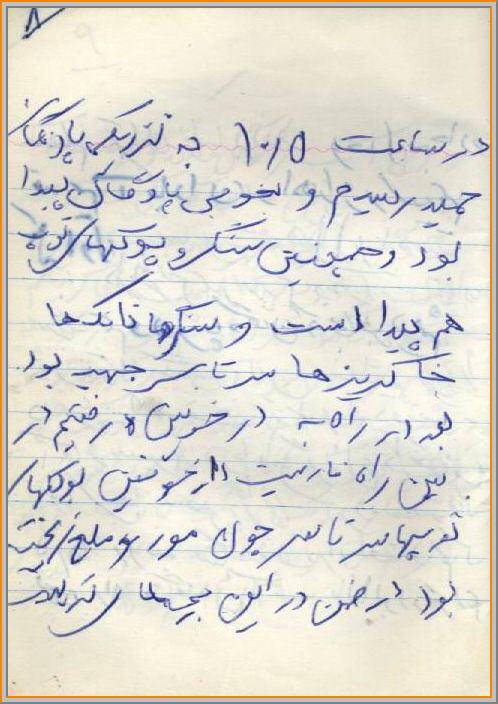 ۸
در ساعت ۱۰/۵ به نزدیک پادگان
حمید رسیدم و بخوبی پادگان پیدا
بود و همچنین سنگر و پوکهای توپ
هم پیدا است و سنگرها تانک ها
خاکریزها سرتاسر جبهه بود
بود در راه به در خوش رفتیم در
بین راه خونین پوکهای
توپها سرتاسر چون مور و ملخ ریخته
بود در ضمن در این